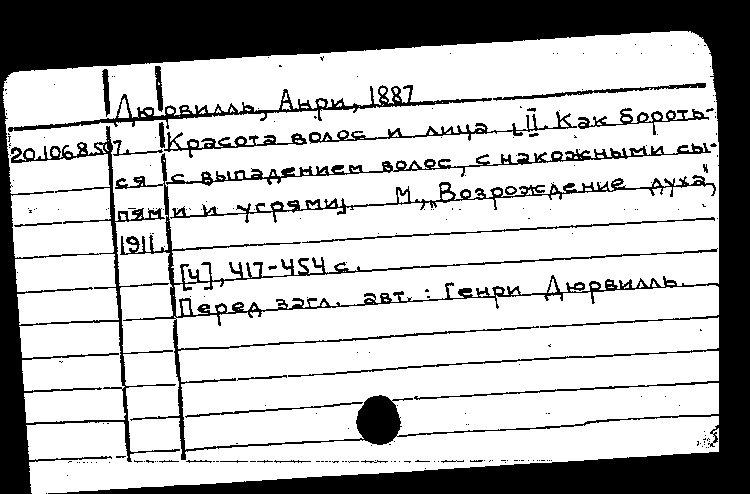 Дюрвилль, Анри, 1887
20.106.8.507. Красота волос и лица. [II]. Как бороть-
ся с выпадением волос, с накожными сы-
пями и угрями]. М., „Возрождение духа",
1911.
[4], 417-454 с.
Перед загл. авт.: Генри Дюрвилль.